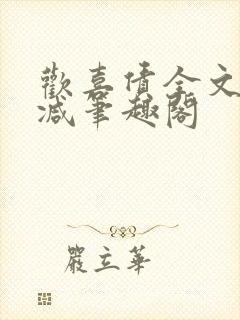 歡喜債全文
減筆趣閣
嚴立華